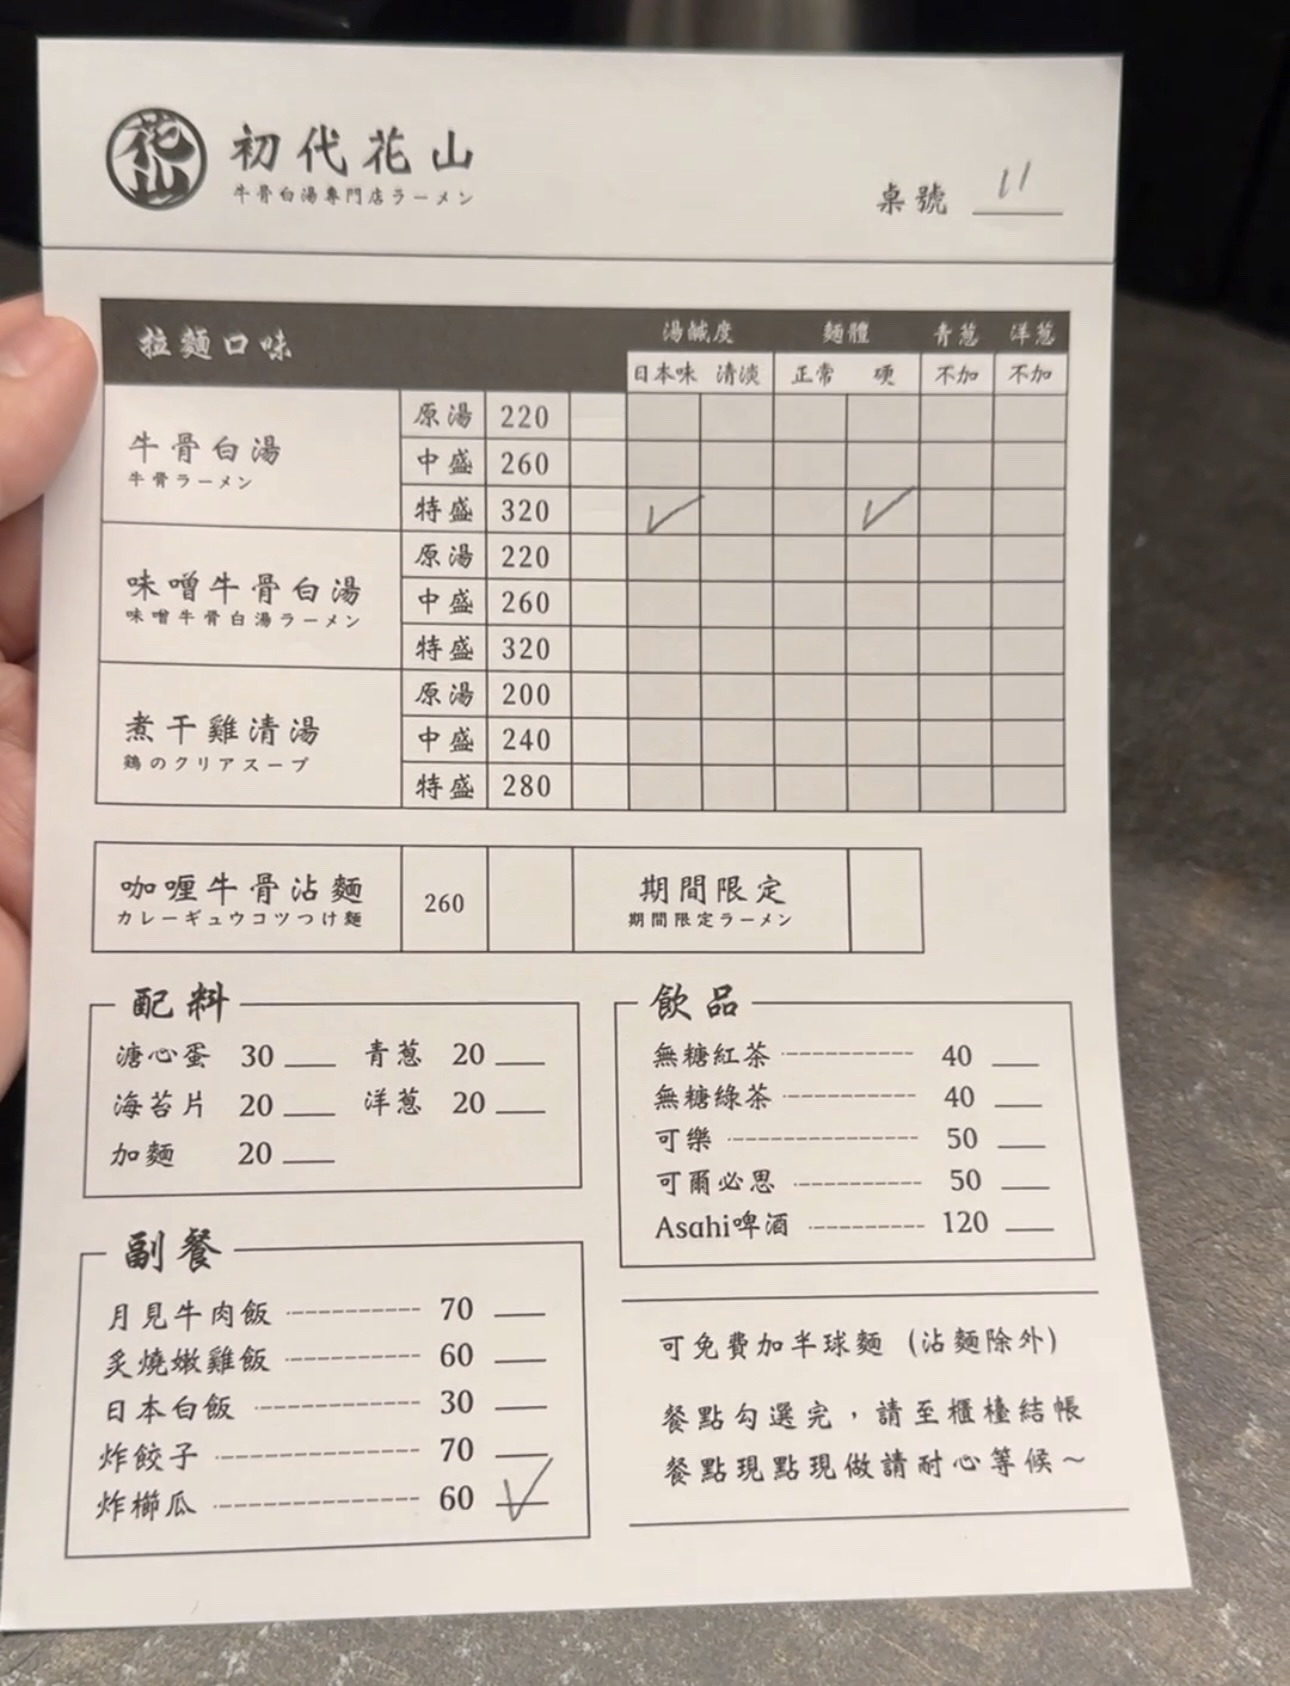 花山
初代花山
牛骨白湯專門店ラーメン
桌號 11
拉麵口味 湯鹹度 麵體 青蔥 洋蔥
日本味 清淡 正常 硬 不加 不加
牛骨白湯
牛骨ラーメン
原湯 220
中盛 260
特盛 320 ✓ ✓
味噌牛骨白湯
味噌牛骨白湯ラーメン
原湯 220
中盛 260
特盛 320
煮干雞清湯
鶏のクリアスープ
原湯 200
中盛 240
特盛 280
咖喱牛骨沾麵 260
カレーギュウコツつけ麵
期間限定
期間限定ラーメン
配料
溏心蛋 30 青蔥 20
海苔片 20 洋蔥 20
加麵 20
飲品
無糖紅茶 40
無糖綠茶 40
可樂 50
可爾必思 50
Asahi啤酒 120
副餐
月見牛肉飯 70
炙燒嫩雞飯 60
日本白飯 30
炸餃子 70
炸櫛瓜 60 ✓
可免費加半球麵（沾麵除外）
餐點勾選完，請至櫃檯結帳
餐點現點現做請耐心等候～